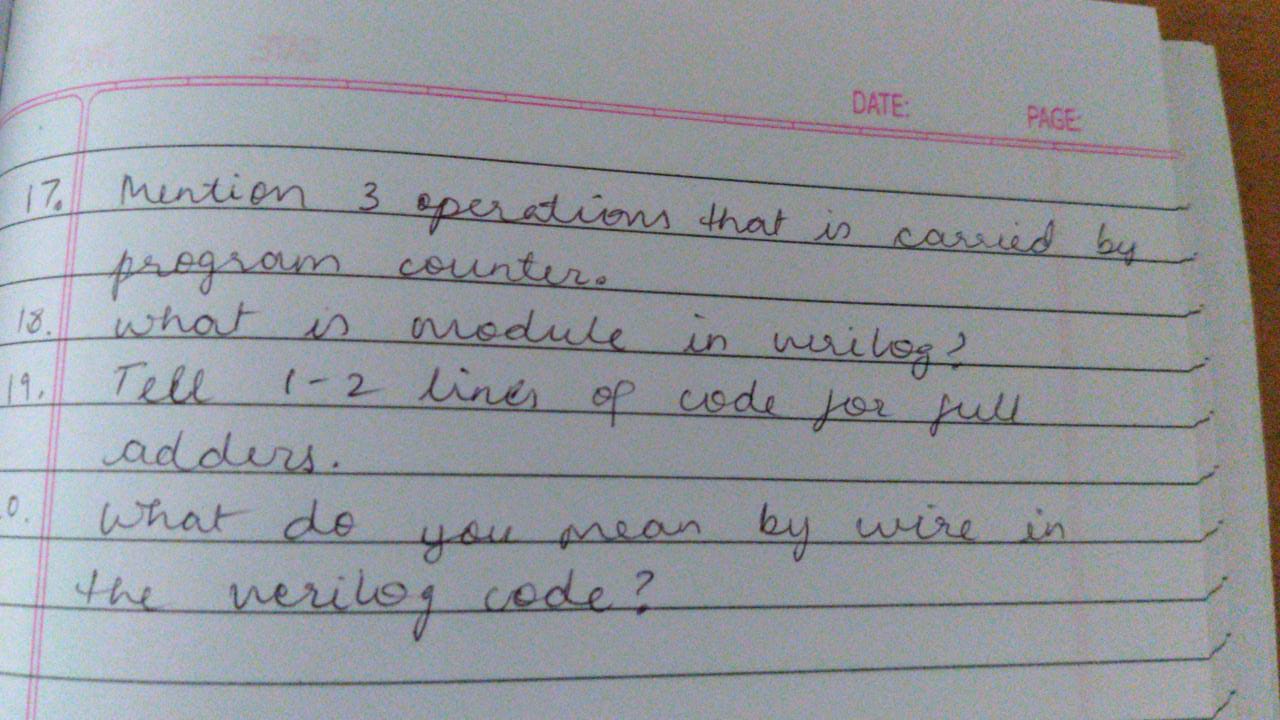 DATE: PAGE:
17. Mention 3 operations that is carried by
program counter.
18. What is module in verilog?
19. Tell 1-2 lines of code for full
adders.
0. What do you mean by wire in
the verilog code?